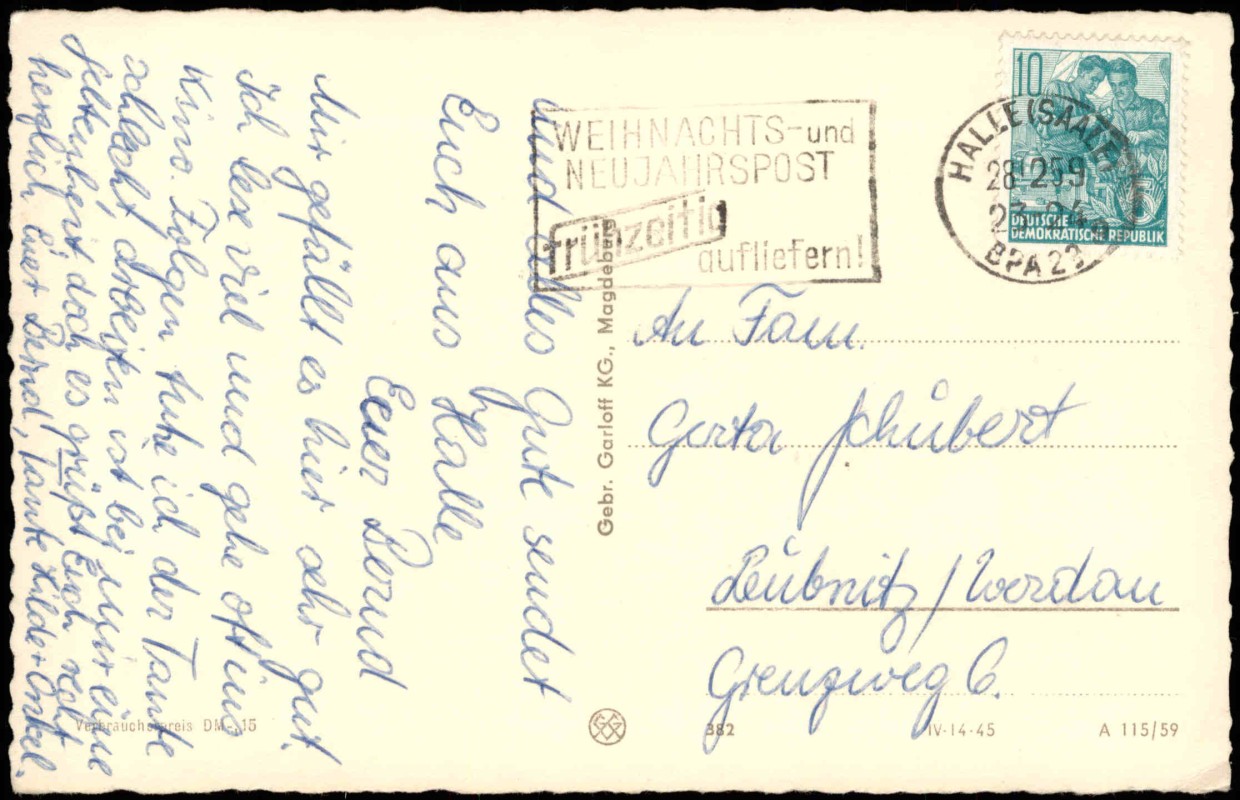 und alles Gute sendet
Euch aus Halle
Euer Bernd
Mir gefällt es hier sehr gut.
Ich lese viel und gehe oft ins
Kino. Folgen tuhe ich der Tante
schlecht, arbeiten ist bei mir eine
Seltenheit, doch es grüßt Euch recht
herzlich Euer Bernd, Tante Hilde + Onkel.
WEIHNACHTS- und
NEUJAHRSPOST
frühzeitig
aufliefern!
HALLE (SAALE)
28.12.59
BPA 23
10
DEUTSCHE
DEMOKRATISCHE REPUBLIK
Gebr. Garloff KG., Magdeburg
An Fam.
Gerta Schubert
Leubnitz / Werdau
Grenzweg 6.
Verbraucherpreis DM -,15
382
IV-14-45
A 115/59